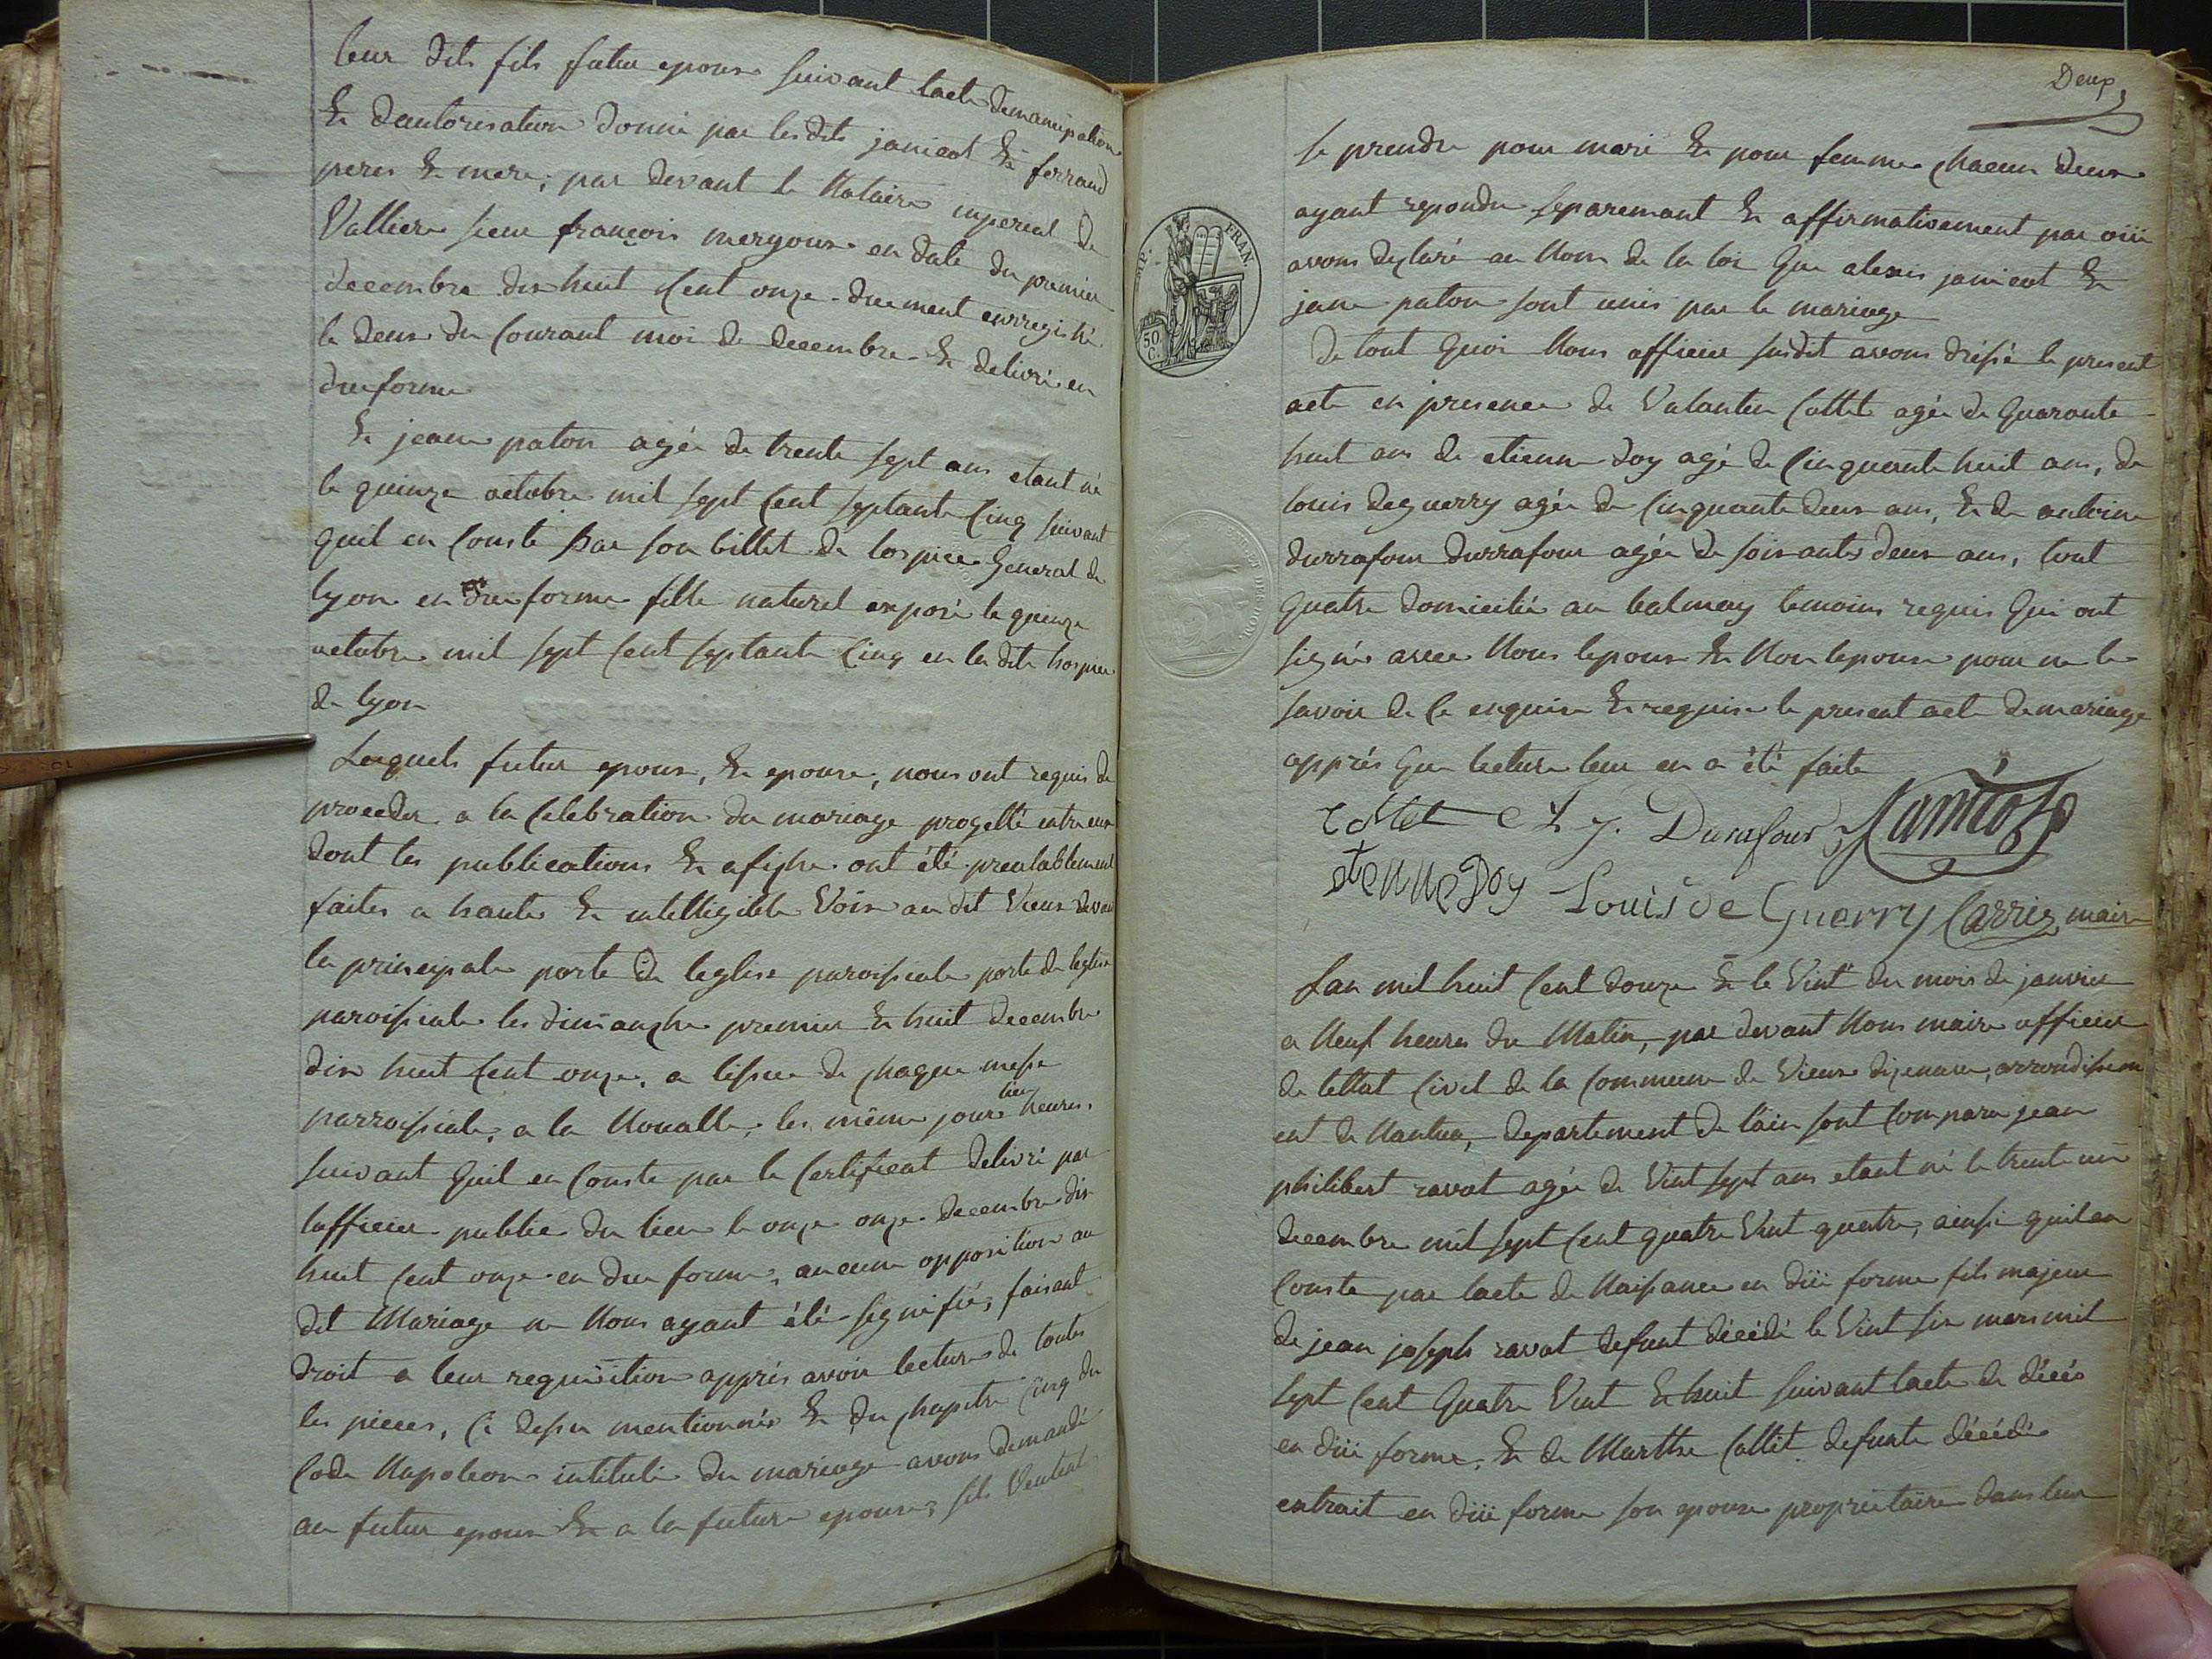 leur dits fils futur epoux suivant lacte demancipation
Et dautorisation donné par lesdits janicot Et ferrand
peres Et mere, par devant le Notaire imperial de
Valliere sieur françois mergoux en date du premier
decembre dix huit Cent onze duement enregistré
le deux du Courant moi de decembre Et delivré en
due forme
Et jeanne paton agée de trente sept ans etant né
le quinze octobre mil sept Cent septante Cinq suivant
quil en Conste par son billet de lospice General de
lyon en due forme fille naturel exposé le quinze
octobre mil sept Cent septante Cinq en la dite hospice
de lyon
Lesquels futur epoux, Et epouse, nous ont requis de
proceder a la Celebration du mariage progetté entre eux
dont les publications Et afiche ont été prealablement
faites a haute Et intelligible Voix au dit Vieux devant
la principale porte de leglise paroissiale porte de leglise
paroissiale les dimanche premier Et huit decembre
dix huit Cent onze, a lissue de chaque messe
parroissiale, a la Noualle, les même jours lieu heures,
suivant quil en Conste par le Certificat delivré par
lofficier public du lieu le onze onze decembre dix
huit Cent onze en due forme, aucune opposition au
dit Mariage ne Nous ayant été signifié, faisant
droit a leur requisition appris avoir lecture de toutes
les pieces, Ci dessu mentionnés Et du chapitre Cinq du
Code Napoleon intitulé du mariage avons demandé
au futur epoux Et a la future epouse, sils Veulent
Deux
se prendre pour mari Et pour femme chacun deux
ayant repondu separemant Et affirmativement par oüi
avons declaré au Nom de la loi Que alexis janicot Et
jane paton sont unis par le mariage
De tout Quoi Nous officier susdit avons dréssé le present
acte en presence de Valantin Collet agée de Quarante
huit ans de etienne doy agé de Cinquante huit ans, de
louis deguerry agée de Cinquante deux ans, Et de antoine
durrafour durrafour agée de soixante deux ans, tout
Quatre domicilié au balmay temoins requis Qui ont
signés avec Nous lepoux Et Non lepouse pour ne le
savoir de Ce enquise Et requise le present acte de mariage
apprés Que lecture leur en a été faite
Collet Durafour janicot
etienne Doy Louis de Guerry Carrier maire
Lan mil huit Cent douze Et le Vint du mois de janvier
a Neuf heures du Matin, par devant Nous maire officier
de lettat Civil de la Commune de Vieux dizenave, arrondissem
ent de Nantua, departement de lain sont Comparu jean
philibert ravat agée de Vint sept ans etant né le trente un
decembre mil sept Cent quatre Vint quatre, ainsi quil en
Conste par lacte de Naissance en düe forme fils majeur
de jean joseph ravat defunt décédé le Vint six mars mil
sept Cent Quatre Vint Et huit suivant lacte de décés
en düe forme, Et de Marthe Collet defunte décédé
extrait en düe forme son epouse proprietaire dans leur